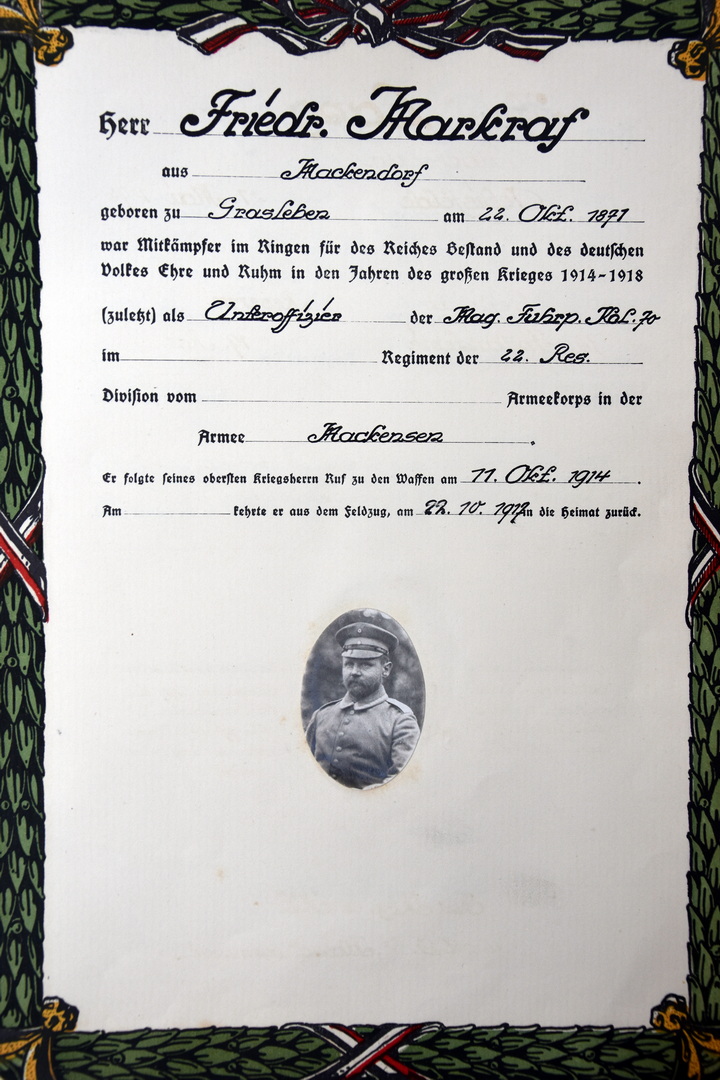 Herr Friedr. Markraf
aus Mackendorf
geboren zu Grasleben am 22. Okt. 1871
war Mitkämpfer im Ringen für des Reiches Bestand und des deutschen
Volkes Ehre und Ruhm in den Jahren des großen Krieges 1914-1918
(zuletzt) als Unteroffizier der Mag. Fuhrp. Kol. 70
im Regiment der 22. Res.
Division vom Armeekorps in der
Armee Mackensen.
Er folgte seines obersten Kriegsherrn Ruf zu den Waffen am 11. Okt. 1914.
Am kehrte er aus dem Feldzug, am 22. 10. 1917 in die Heimat zurück.